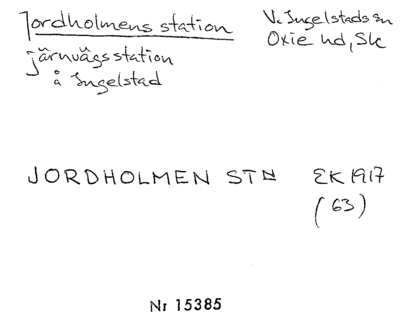 Jordholmens station
V. Ingelstads sn
Oxie hd, Sk
järnvägsstation
å Ingelstad
JORDHOLMEN STN EK 1917
(63)
Nr 15385